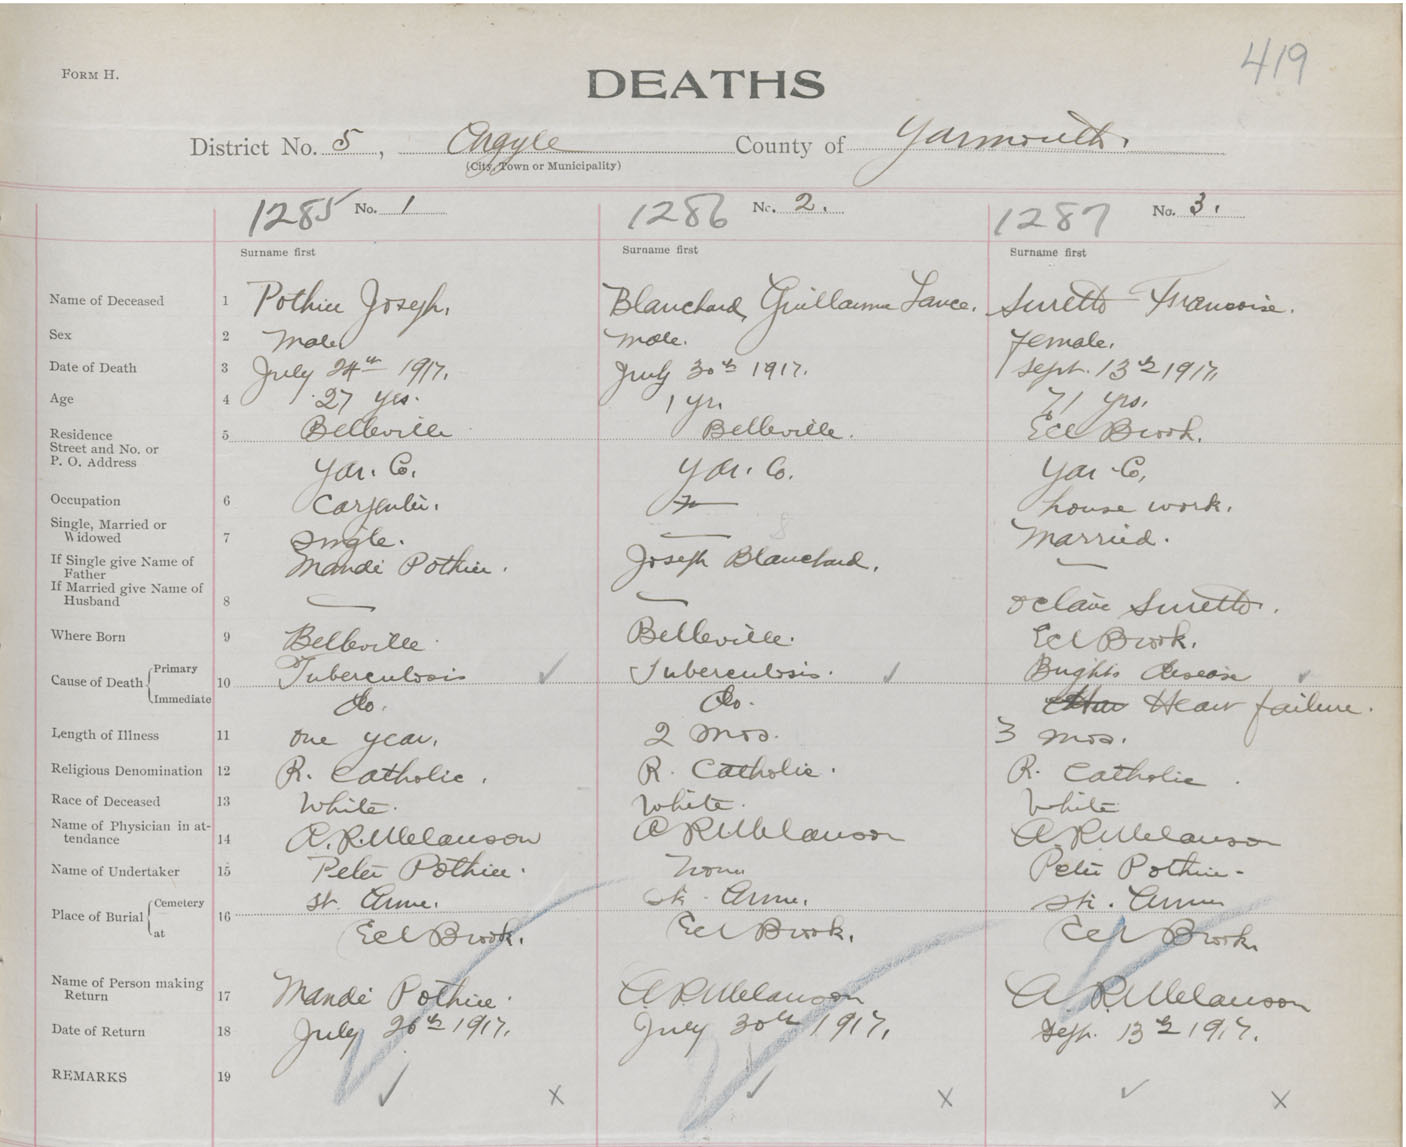 419
FORM H.
DEATHS
District No. 5, Argyle County of Yarmouth.
(City, Town or Municipality)
1285 No. 1 1286 No. 2. 1287 No. 3.
Surname first Surname first Surname first
Name of Deceased 1 Pothier Joseph. Blanchard, Guillaume Surette Francoise.
Sex 2 Male male. female.
Date of Death 3 July 24th 1917. July 30th 1917. Sept. 13th 1917,
Age 4 27 yrs. 1 yr. 71 yrs.
Residence 5 Belleville Belleville. Eel Brook.
Street and No. or
P. O. Address Yar. Co. Yar. Co. Yar Co,
Occupation 6 Carpenter. house work.
Single, Married or
Widowed 7 Single. — Married.
If Single give Name of
Father Mandé Pothier. Joseph Blanchard. —
If Married give Name of
Husband 8 — — Octave Surette.
Where Born 9 Belleville. Belleville. Eel Brook.
Cause of Death Primary 10 Tuberculosis Tuberculosis. Brights disease
Immediate Do. Do. Heart failure.
Length of Illness 11 one year. 2 mos. 3 mos.
Religious Denomination 12 R. Catholic. R. Catholic. R. Catholic.
Race of Deceased 13 White. White. White
Name of Physician in at-
tendance 14 A. R. Melanson A R Melanson A. R. Melanson
Name of Undertaker 15 Peter Pothier. None Peter Pothier-
Place of Burial Cemetery 16 St. Anne. St. Anne. St. Anne
at Eel Brook. Eel Brook. Eel Brook.
Name of Person making
Return 17 Mandé Pothier. A. R. Melanson A R. Melanson
Date of Return 18 July 26th 1917. July 30th 1917. Sept. 13th 1917.
REMARKS 19